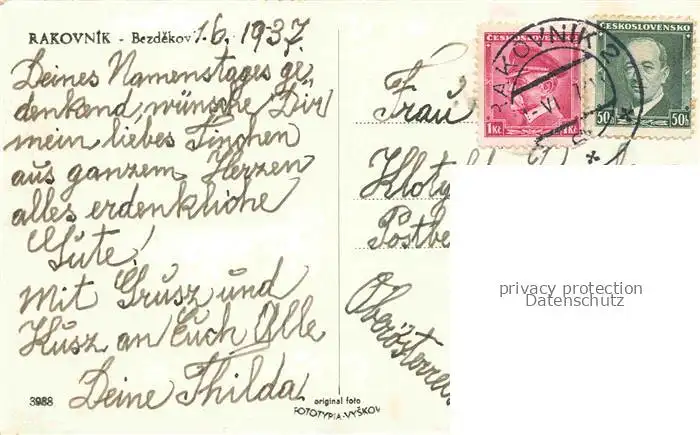 RAKOVNÍK - Bezděkov 1.6.1937.
Deines Namenstages ge-
denkend, wünsche Dir
mein liebes Tinchen
aus ganzem Herzen
alles erdenkliche
Gute!
Mit Grusz und
Kusz an Euch Alle
Deine Thilda
3988
original foto
FOTOTYPIA-VYŠKOV
ČESKOSLOVENSKO
1Kč
1Kč
ČESKOSLOVENSKO
50h
50h
RAKOVNÍK
VI
Frau
Oberösterrei
privacy protection
Datenschutz